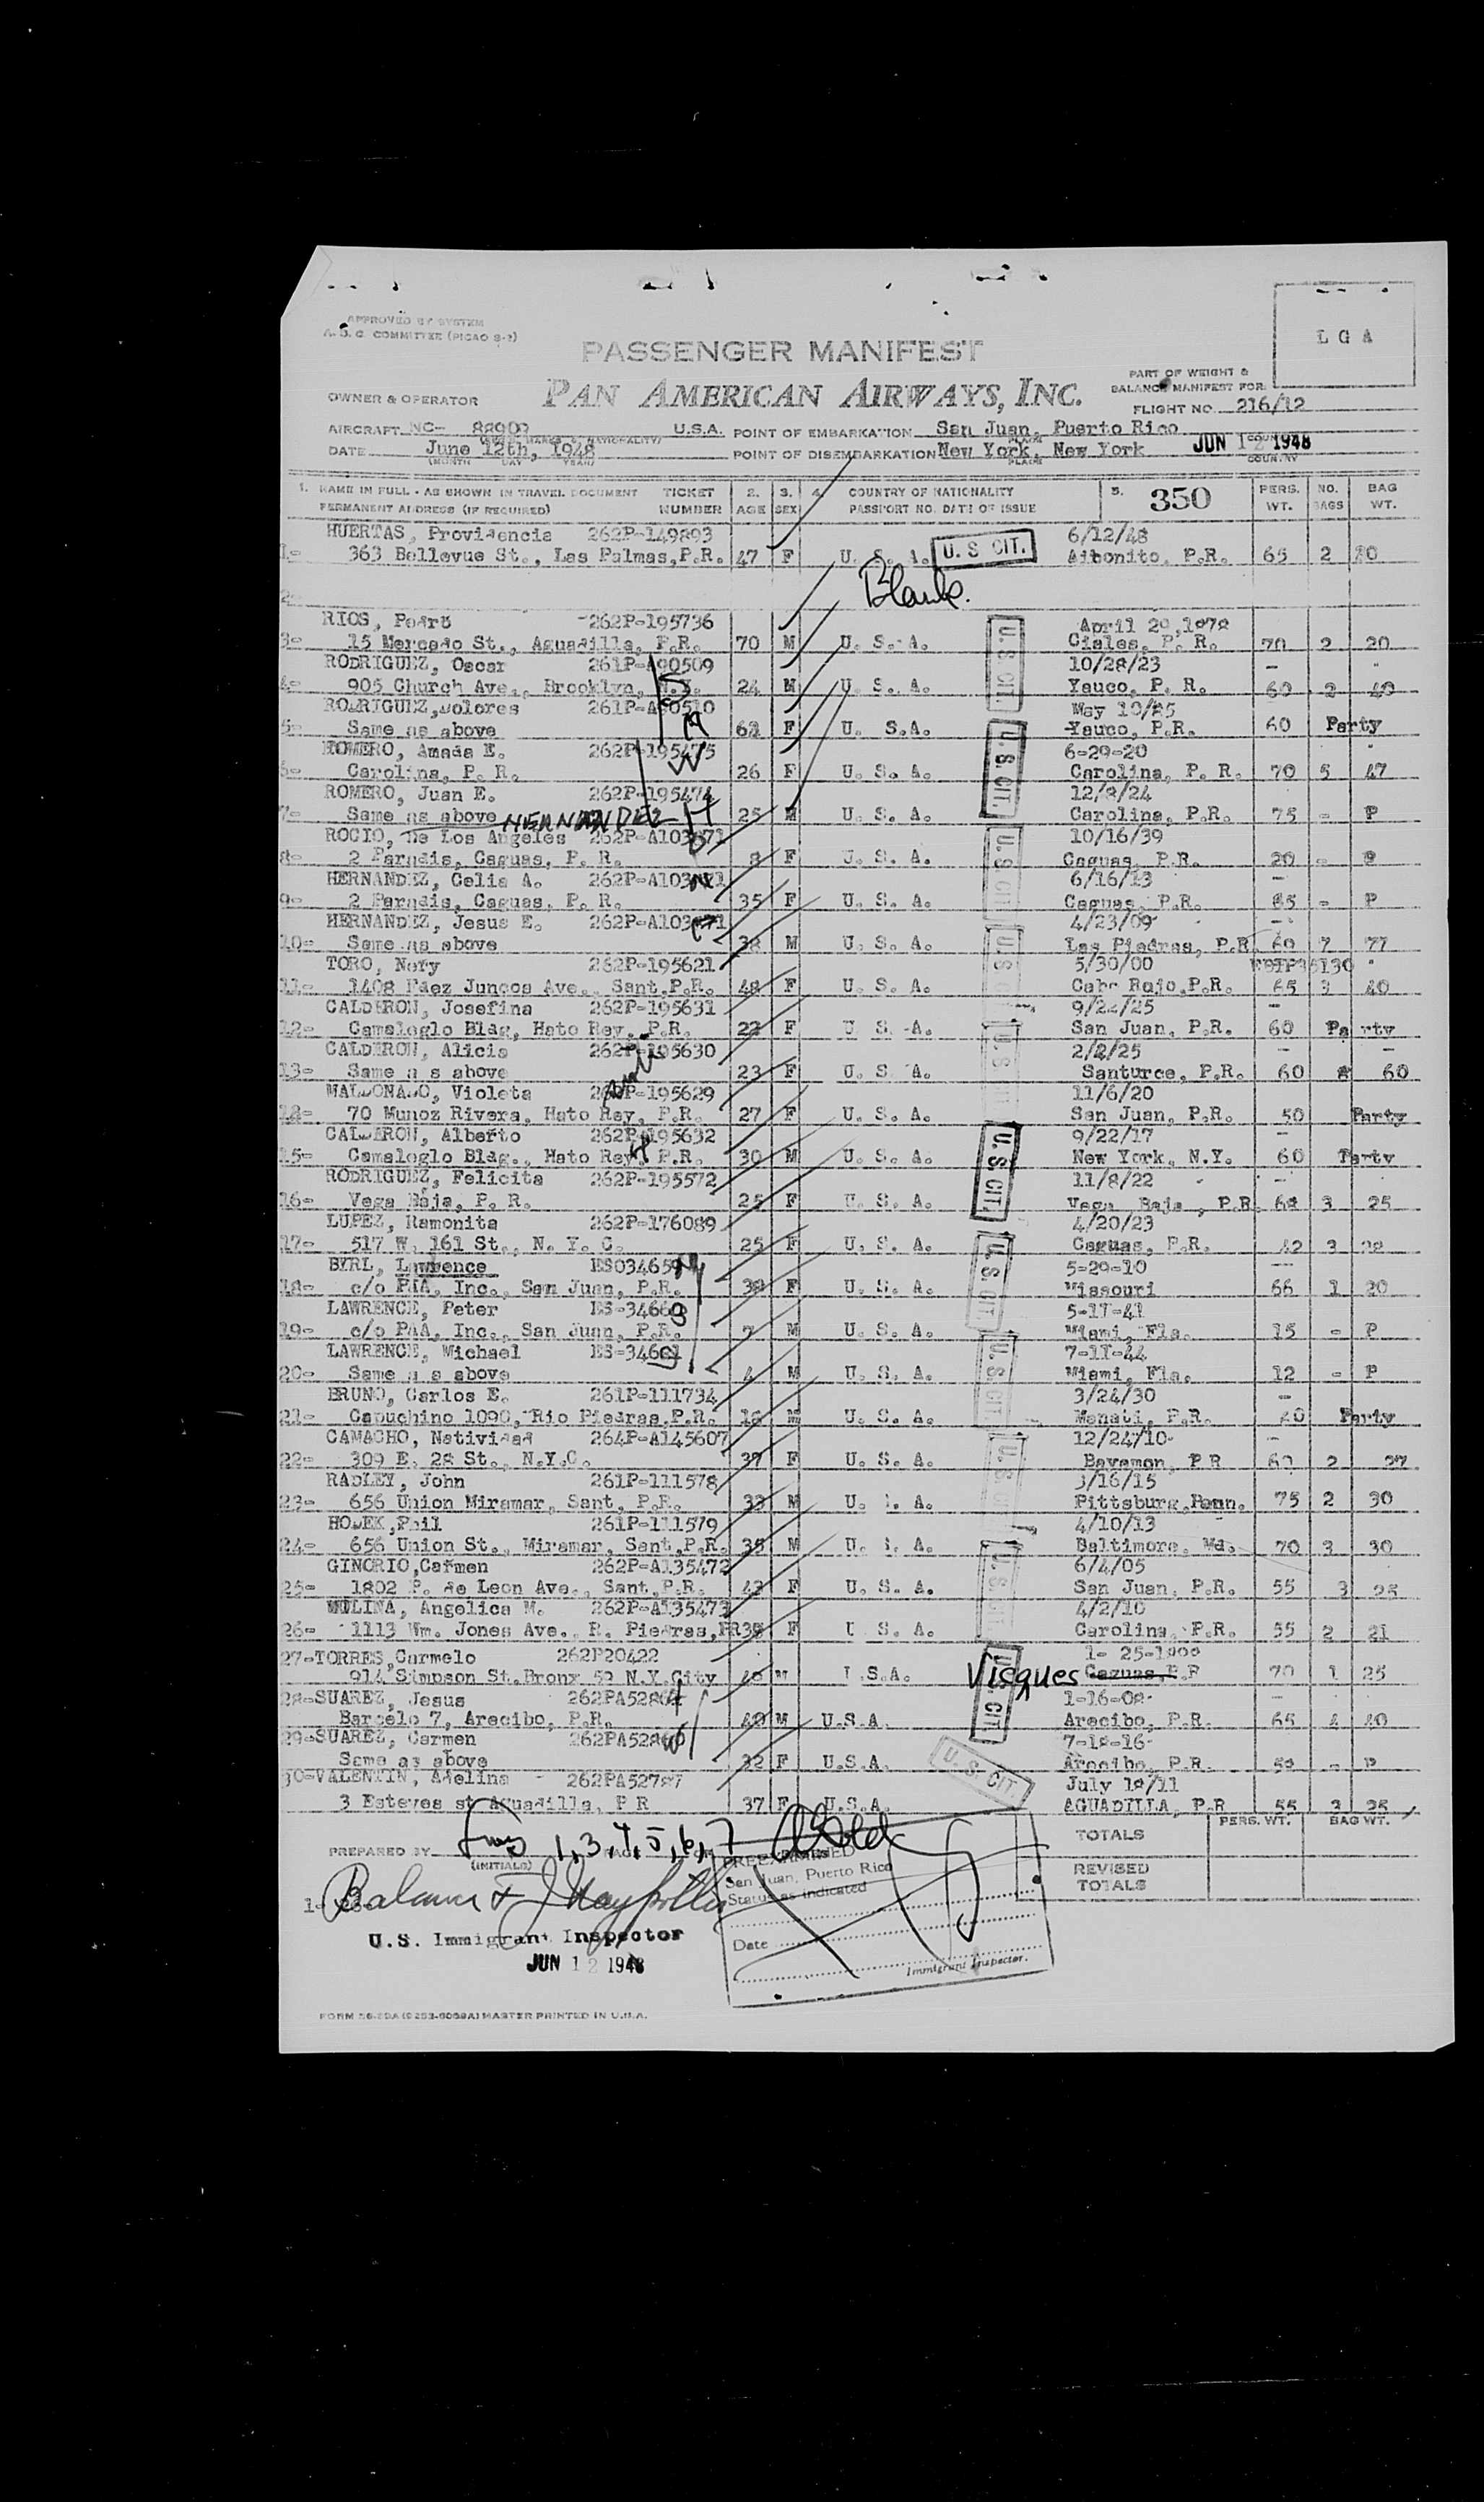 APPROVED BY SYSTEM
A. D. C. COMMITTEE (PICAO S-2)
L G A
PASSENGER MANIFEST
PART OF WEIGHT &
BALANCE MANIFEST FOR
OWNER & OPERATOR PAN AMERICAN AIRWAYS, INC.
FLIGHT NO. 216/12
AIRCRAFT NC- U.S.A. POINT OF EMBARKATION San Juan, Puerto Rico
DATE June 12th, 1948 POINT OF DISEMBARKATION New York, New York JUN 12 1948
(MONTH DAY YEAR) PLACE COUNTRY
1. NAME IN FULL - AS SHOWN IN TRAVEL DOCUMENT TICKET 2. 3. 4. COUNTRY OF NATIONALITY 5. 350 PERS. NO. BAG
PERMANENT ADDRESS (IF REQUIRED) NUMBER AGE SEX PASSPORT NO. DATE OF ISSUE WT. BAGS WT.
HUERTAS, Providencia 262P-149893 6/12/48
1- 363 Bellevue St., Las Palmas, P.R. 47 F U. S. A. U. S. CIT. Aibonito, P.R. 65 2
2- Blank.
RIOS, Pedro 262P-195736 April 29,1878
3- 15 Mercado St., Aguadilla, P.R. 70 M U. S. A. Ciales, P. R. 70 2 20
RODRIGUEZ, Oscar 261P-A90509 10/28/23
4- 905 Church Ave., Brooklyn, N.Y. 24 M U. S. A. Yauco, P. R. 60 2 40
RODRIGUEZ, Dolores 261P-A90510 May 10/85
5- Same as above F U. S.A. Yauco, P.R. 60 Party
ROMERO, Amada E. 262P-195475 6-29-20
6- Carolina, P. R. 26 F U. S. A. Carolina, P. R. 70 5 47
ROMERO, Juan E. 262P-195474 12/8/24
7- Same as above 25 M U. S. A. Carolina, P.R. 75 - P
HERNANDEZ
ROCIO, De Los Angeles 262P-A103671 10/16/39
8- 2 Paradis, Caguas, P. R. 8 F U. S. A. Caguas, P.R. 20 - P
HERNANDEZ, Celia A. 6/16/13
9- 2 Paradis, Caguas, P. R. 35 F U. S. A. Caguas, P.R. - P
HERNANDEZ, Jesus E. 4/23/09
10- Same as above 38 M U. S. A. Las Piedras, P.R. 60 7 77
TORO, Nery 262P-195621 5/30/00
11- 1408 Fdez Juncos Ave., Sant.P.R. 48 F U. S. A. Cabo Rojo,P.R. 65 3 40
CALDERON, Josefina 262P-195631 9/22/25
12- Camaloglo Bldg, Hato Rey, P.R. 22 F U. S. A. San Juan, P.R. 60 Party
CALDERON, Alicia 262P-195630 2/2/25
13- Same a s above 23 F U. S. A. Santurce, P.R. 60 60
MALDONADO, Violeta 262P-195629 11/6/20
70 Munoz Rivera, Hato Rey, P.R. 27 F U. S. A. San Juan, P.R. 50 Party
CALDERON, Alberto 262P-195632 9/22/17
15- Camaloglo Bldg., Hato Rey, P.R. 30 M U. S. A. New York, N.Y. 60 Party
RODRIGUEZ, Felicita 262P-195572 11/8/22
16- Vega Baja, P. R. 25 F U. S. A. Vega Baja, P.R. 3 25
LUPEZ, Ramonita 262P-176089 4/20/23
17- 517 W. 161 St., N. Y. C. 25 F U. S. A. Caguas, P.R. 42 3
BYRL, Lawrence 5-29-10
18- c/o PAA, Inc., San Juan, P.R. 38 F U. S. A. Missouri 66 1 20
LAWRENCE, Peter 5-17-41
19- c/o PAA, Inc., San Juan, P.R. 7 M U. S. A. Miami, Fla. 15 - P
LAWRENCE, Michael 7-11-44
20- Same a s above 4 M U. S. A. Miami, Fla. 12 - P
BRUNO, Carlos E. 261P-111734 3/24/30
21- Capuchino 1090, Rio Piedras,P.R. 18 M U. S. A. Manati, P.R. Party
CAMACHO, Natividad 264P-A145607 12/24/10
22- 309 E. 28 St., N.Y.C. 37 F U. S. A. Bayamon, P R 2
RADLEY, John 261P-111578 3/16/15
23- 656 Union Miramar, Sant, P.R. 33 M Pittsburg,Penn. 75 2 30
261P-111579 4/10/13
24- 656 Union St., Miramar, Sant,P.R. 35 M Baltimore, Md. 70 3 30
GINORIO,Carmen 262P-A135472 6/4/05
25- 1802 P. de Leon Ave., Sant.P.R. 43 F U. S. A. San Juan, P.R. 55 3 25
MOLINA, Angelica M. 262P-A135473 4/2/10
26- 1113 Wm. Jones Ave., R. Piedras,PR 38 F U. S. A. Carolina, P.R. 55 2 21
27-TORRES,Carmelo 262P20422
914 Simpson St.Bronx 59 N.Y.City M U.S.A. Vieques Caguas P.R 70 1 25
28-SUAREZ, Jesus 1-16-08
Barcelo 7, Arecibo, P.R. 40 M U.S.A. Arecibo, P.R. 65 4 40
29-SUAREZ, Carmen 7-18-16
Same as above 32 F U.S.A. Arecibo, P.R. - P
30-VALENTIN, Adelina 262PA52787 July 18/11
3 Esteves st Aguadilla, P R 37 F U.S.A. AGUADILLA, P.R 55 3 25
PERS. WT. BAG WT.
1,3,4,5,6,7
PREPARED BY TOTALS
(INITIALS)
REVISED
TOTALS
PREEXAMINED
San Juan, Puerto Rico
Status as indicated
Balance
U.S. Immigrant Inspector
JUN 12 1948
Date
Immigrant Inspector.
MASTER PRINTED IN U.S.A.